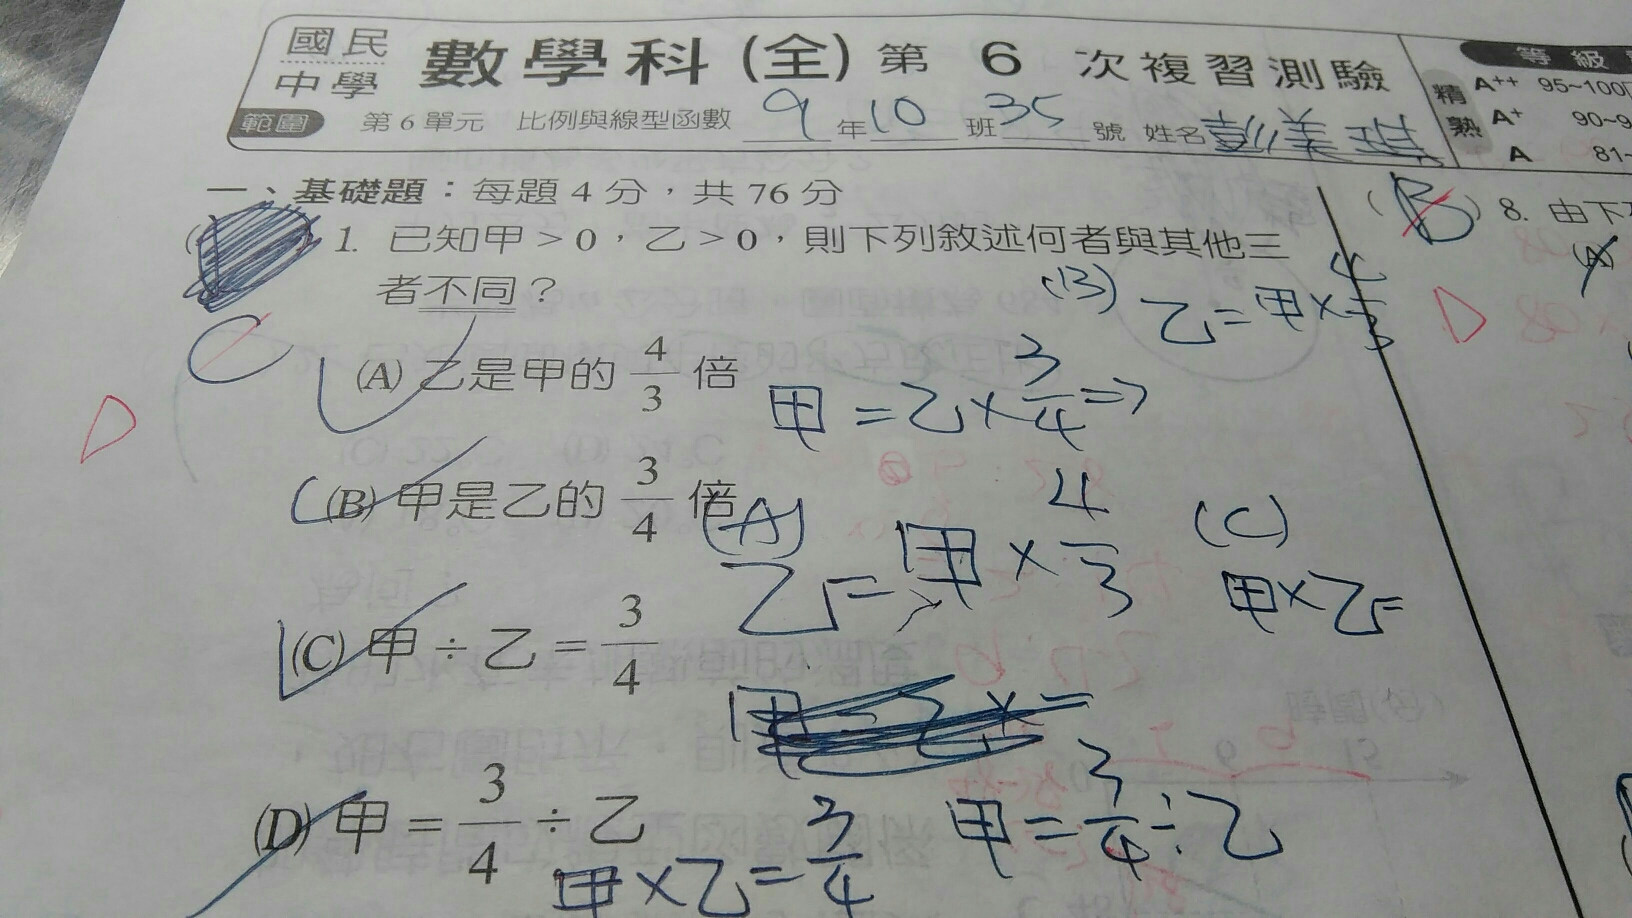 國民中學 數學科(全) 第 6 次複習測驗
範圍 第6單元 比例與線型函數 9年10班35號 姓名
等級
精熟
A++ 95~100
A+ 90~9
A 81~
一、基礎題：每題 4 分，共 76 分
1. 已知甲 > 0，乙 > 0，則下列敘述何者與其他三
者不同？
C
(A) 乙是甲的 4/3 倍
(B) 甲是乙的 3/4 倍
(C) 甲 ÷ 乙 = 3/4
(D) 甲 = 3/4 ÷ 乙
(B) 乙=甲×4/3
甲=乙×3/4⇒
(A)
乙=甲×4/3
(C)
甲×乙=
甲=3/4÷乙
甲×乙=3/4
(B) 8. 由下
(A)